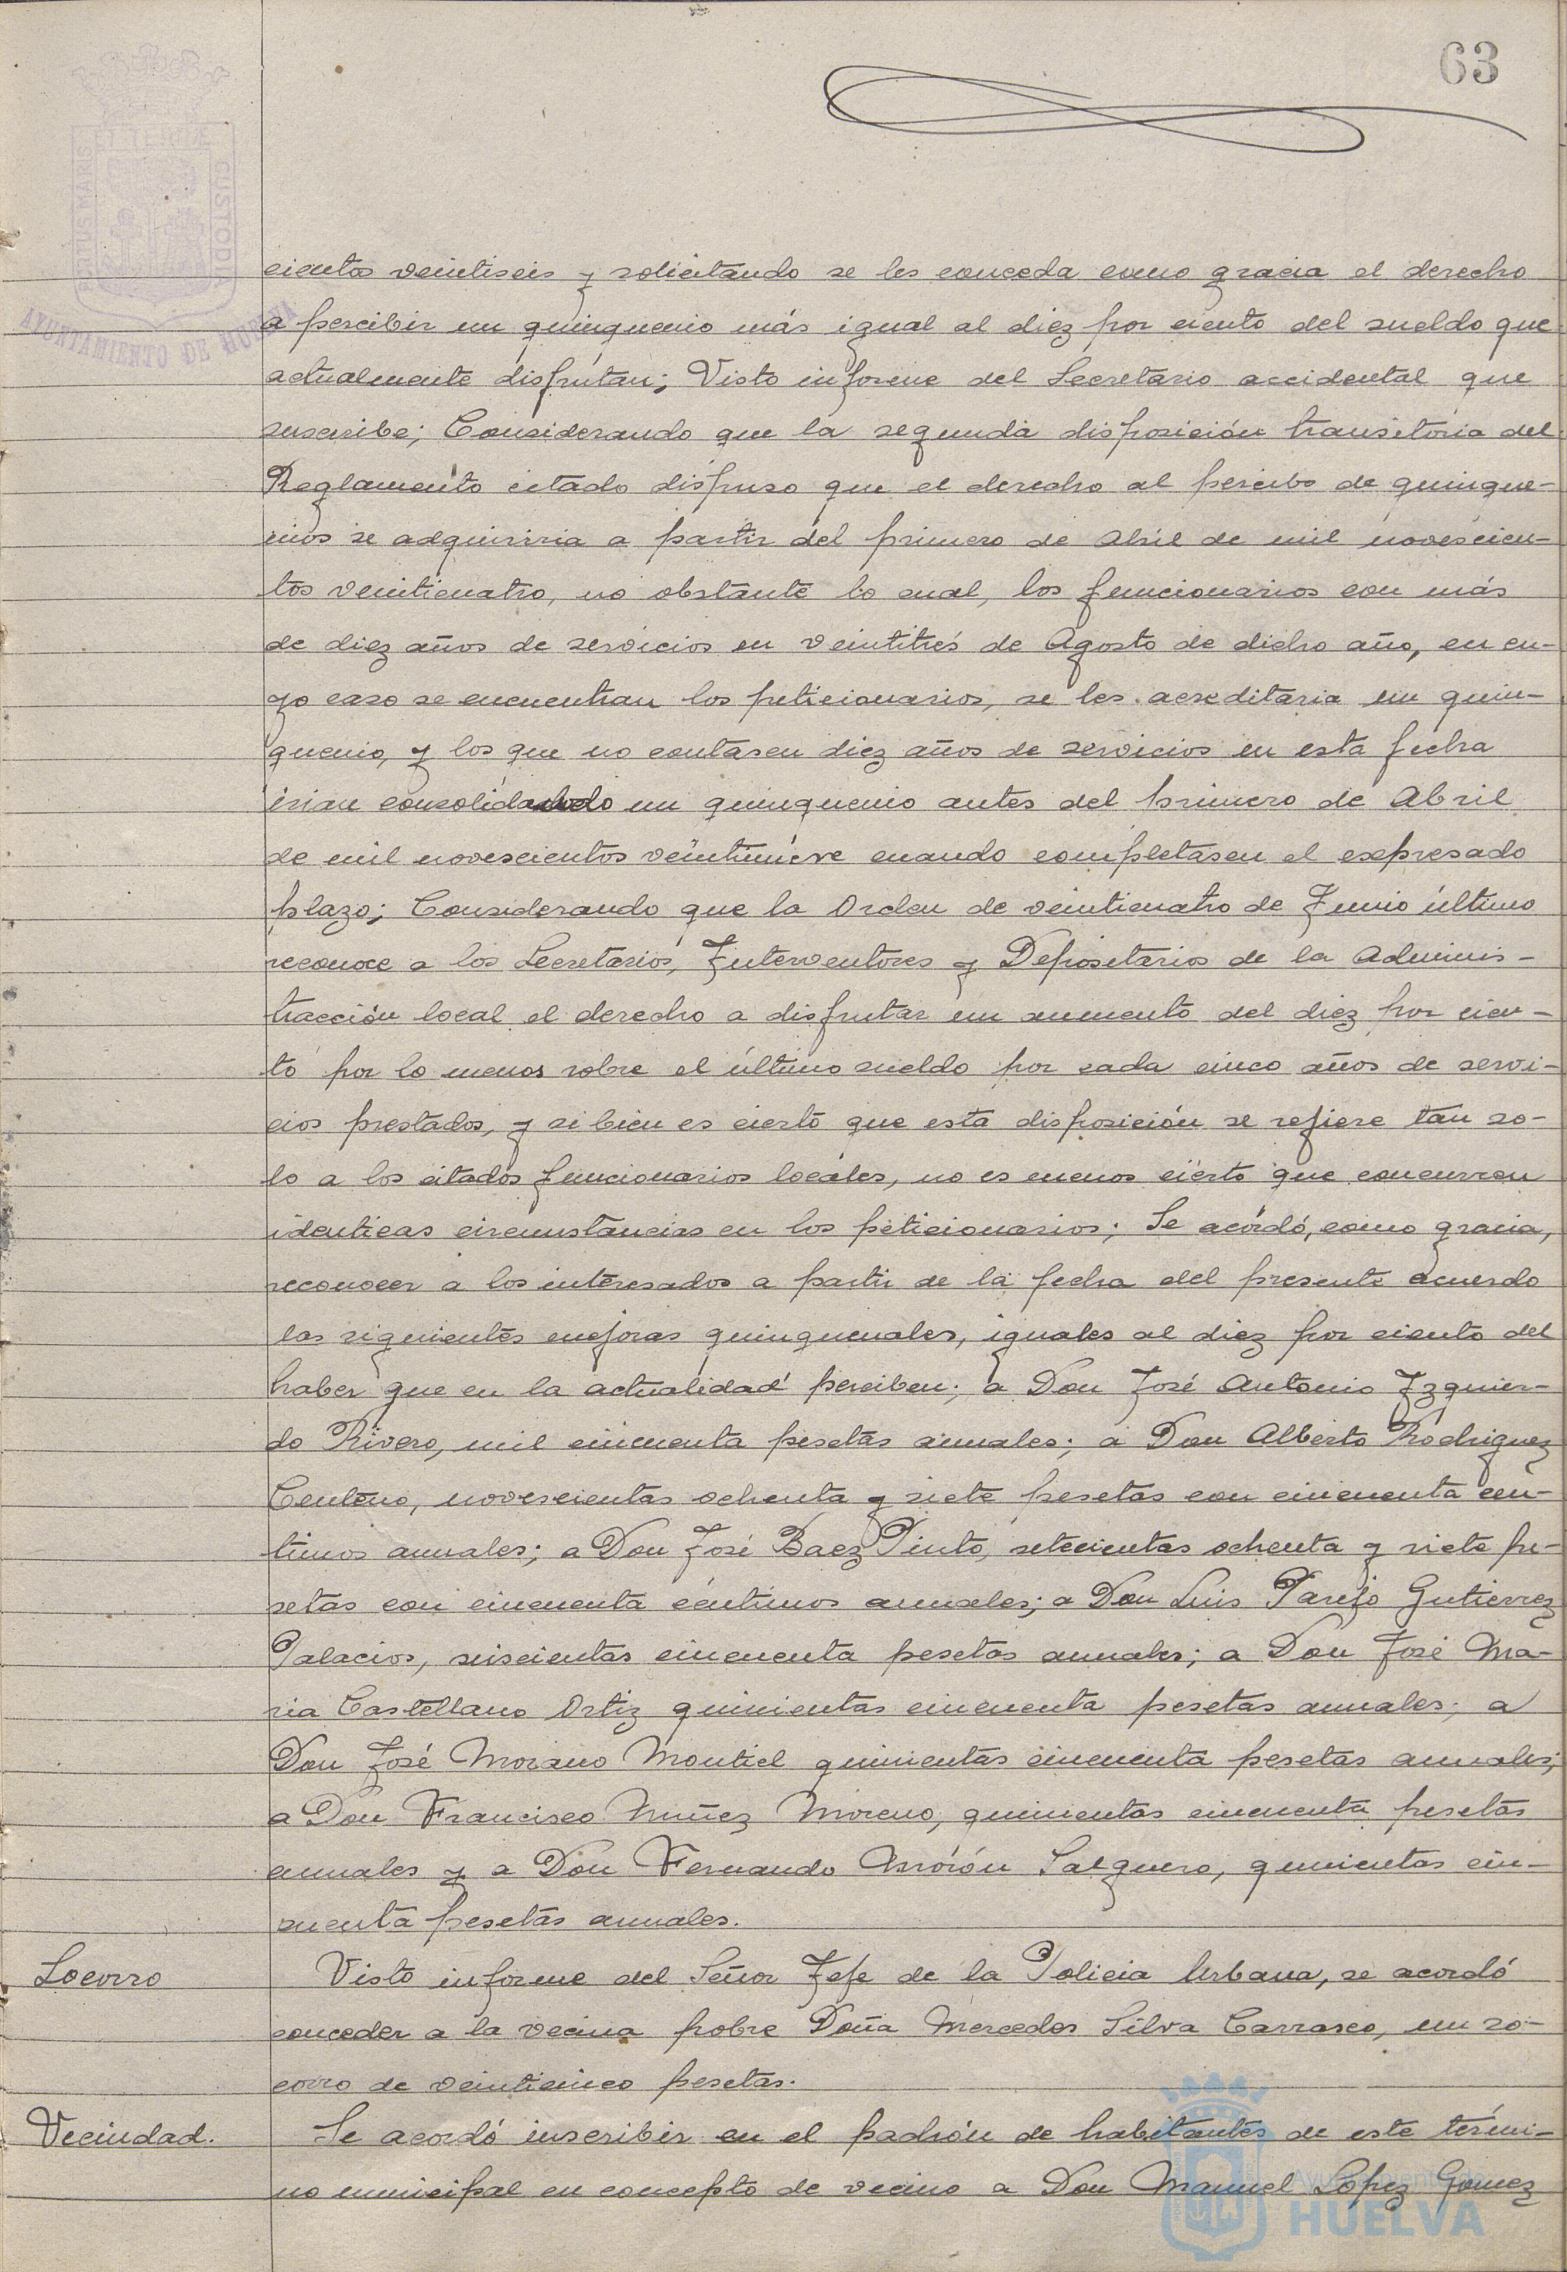 63
PORTUS MARIS ET TERRAE CUSTODIA
AYUNTAMIENTO DE HUELVA
cientos veintiseis y solicitando se les conceda como gracia el derecho
a percibir un quinquenio más igual al diez por ciento del sueldo que
actualmente disfrutan; Visto informe del Secretario accidental que
suscribe; Considerando que la segunda disposición transitoria del
Reglamento citado dispuso que el derecho al percibo de quinque-
nios se adquiriria a partir del primero de Abril de mil novescien-
tos veinticuatro, no obstante lo cual, los funcionarios con más
de diez años de servicios en veintitrés de Agosto de dicho año, en cu-
yo caso se encuentran los peticionarios, se les acreditaria un quin-
quenio, y los que no contasen diez años de servicios en esta fecha
irian consolidando un quinquenio antes del primero de Abril
de mil novescientos veintinueve cuando completasen el expresado
plazo; Considerando que la Orden de veinticuatro de Junio último
reconoce a los Secretarios, Interventores y Depositarios de la Adminis-
tracción local el derecho a disfrutar un aumento del diez por cien-
to por lo menos sobre el último sueldo por cada cinco años de servi-
cios prestados, y si bien es cierto que esta disposición se refiere tan so-
lo a los citados funcionarios locales, no es menos cierto que concurren
identicas circunstancias en los peticionarios; Se acordó, como gracia,
reconocer a los interesados a partir de la fecha del presente acuerdo
las siguientes mejoras quinquenales, iguales al diez por ciento del
haber que en la actualidad perciben; a Don José Antonio Izquier-
do Rivero, mil cincuenta pesetas anuales; a Don Alberto Rodriguez
Centeno, novescientas ochenta y siete pesetas con cincuenta cén-
timos anuales; a Don José Baez Pinto, setecientas ochenta y siete pe-
setas con cincuenta céntimos anuales; a Don Luis Parejo Gutierrez
Palacios, seiscientas cincuenta pesetas anuales; a Don José Ma-
ria Castellano Ortiz quinientas cincuenta pesetas anuales; a
Don José Morano Montiel quinientas cincuenta pesetas anuales;
a Don Francisco Nuñez Moreno, quinientas cincuenta pesetas
anuales y a Don Fernando Salguero, quinientas cin-
cuenta pesetas anuales.
Socorro
Visto informe del Señor Jefe de la Policia Urbana, se acordó
conceder a la vecina pobre Doña Mercedes Silva Carrasco, un so-
corro de veinticinco pesetas.
Vecindad.
Se acordó inscribir en el padrón de habitantes de este térmi-
no municipal en concepto de vecino a Don Manuel López Gomez
Ayuntamiento de
HUELVA